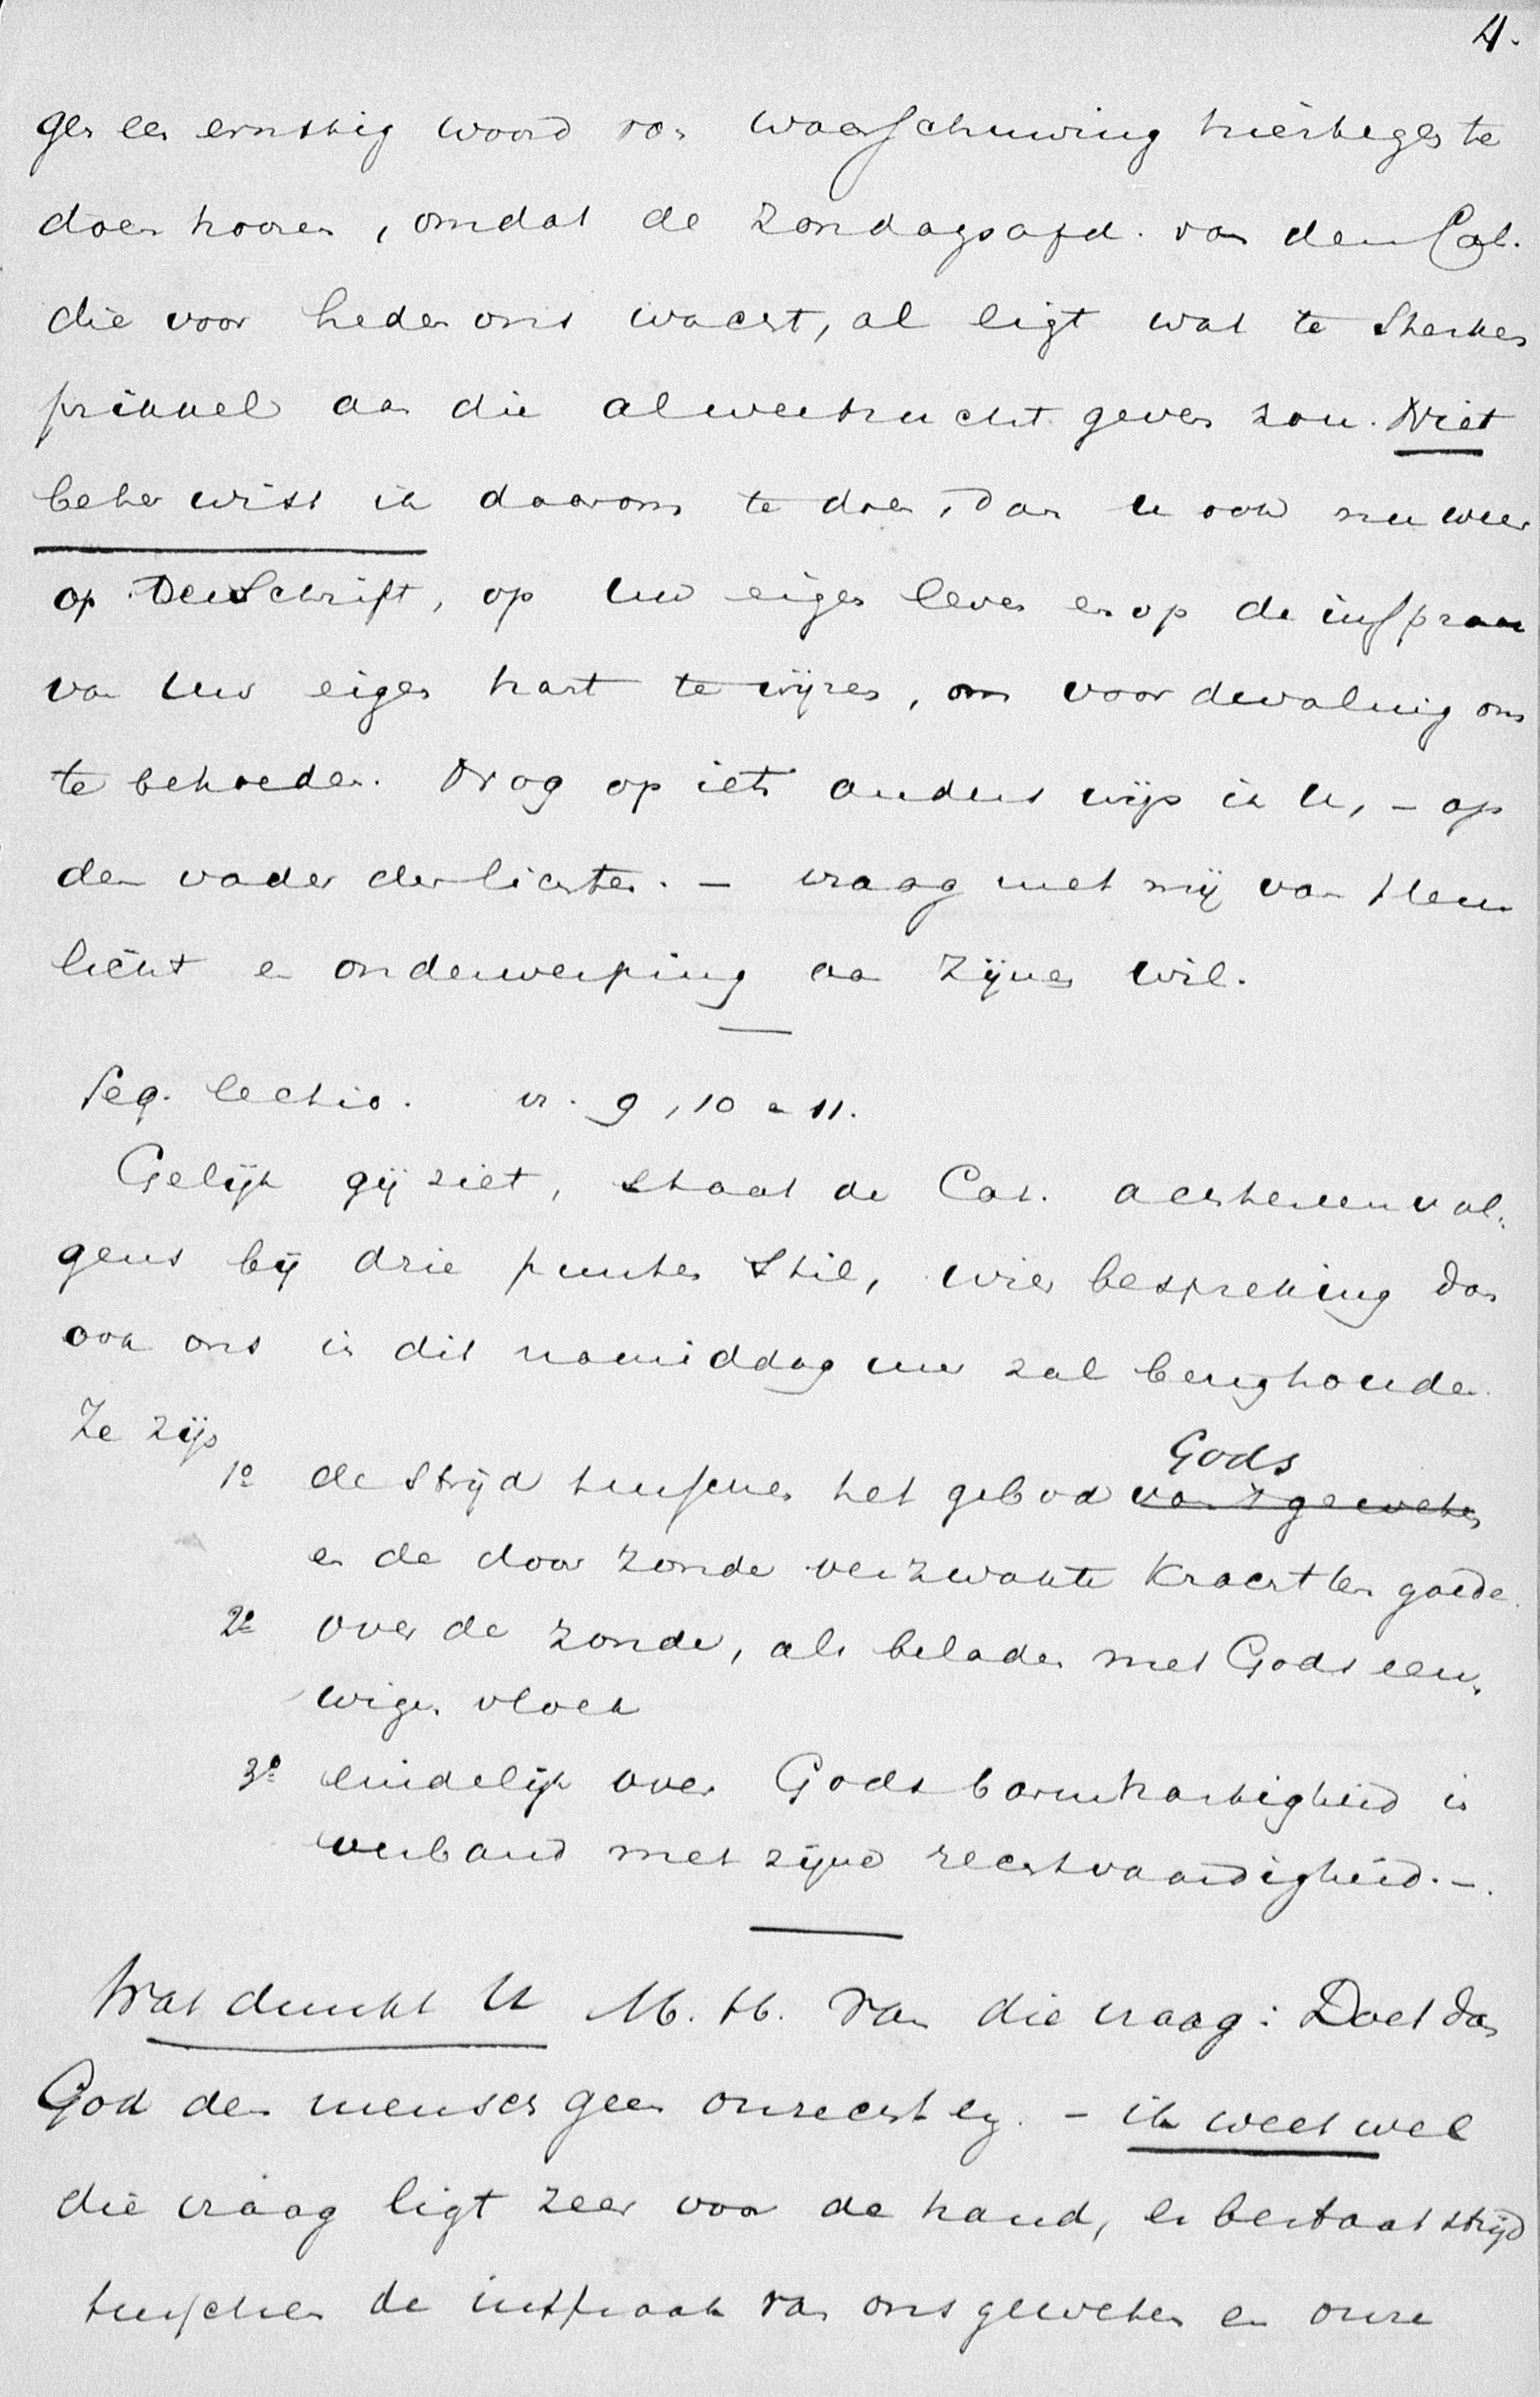 4.
gen een ernstig woord van waarschuwing hiertegen te
doen hooren, omdat de Zondagsafd. van den Cat.
die voor heden ons wacht, al ligt wat te sterken
prikkel aan die zucht geven zou. Niet
beter wist ik daarom te doen, dan u ook nu weer
op de Schrift, op uw eigen leven en op de inspraak
van uw eigen hart te wijzen, om voor dwaling ons
te behoeden. Nog op iets anders wijs ik U, – op
den vader der lichten. – vraag met mij van Hem
licht en onderwerping aan Zijnen wil.
Seq. lectio. vr. 9, 10 en 11.
Gelijk gij ziet, staat de Cat. achtereenvol-
gens bij drie punten stil, wier bespreking dan
ook ons in dit namiddaguur zal bezighouden.
Ze zijn
1o de strijd tusschen het gebod van 't geweten Gods
en de door zonde verzwakte kracht ten goede.
2o over de zonde, als beladen met Gods eeu-
wigen vloek
3o eindelijk over Gods barmhartigheid in
verband met zijne rechtvaardigheid. –
Wat dunkt U M. H. van die vraag: Doet dan
God den mensch geen onrecht enz. – ik weet wel
die vraag ligt zeer voor de hand, er bestaat strijd
tusschen de inspraak van ons geweten en onze